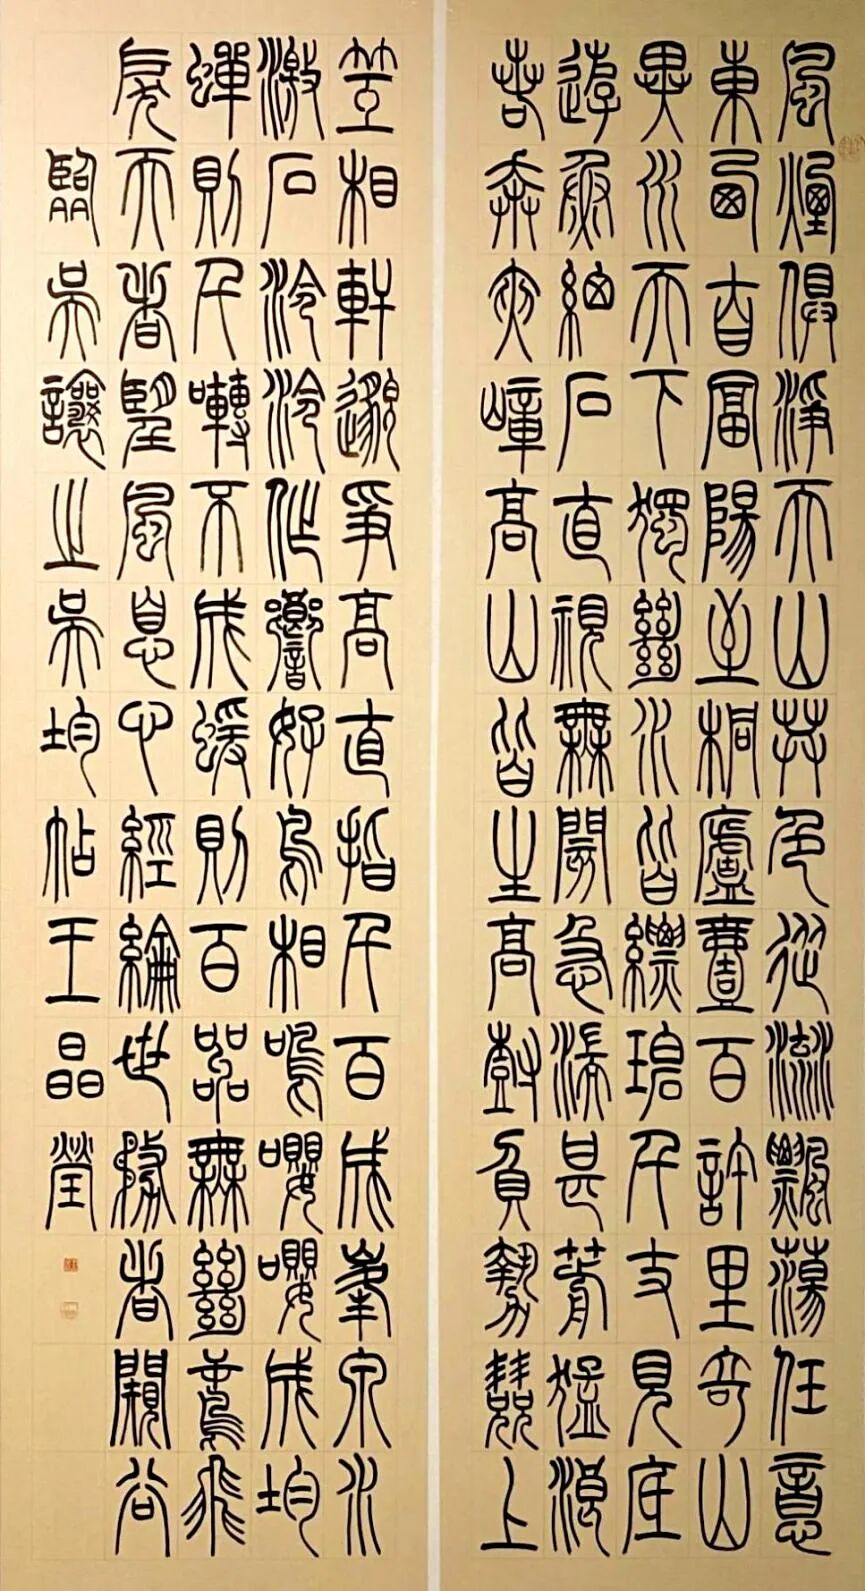 風煙俱淨天山共色從流飄蕩任意
東西自富陽至桐廬壹百許里奇山
異水天下獨絕水皆縹碧千丈見底
游魚細石直視無閡急湍甚箭猛浪
若奔夾嶂高山皆生高樹負勢競上
互相軒邈爭高直指千百成峯泉水
激石泠泠作響好鳥相鳴嚶嚶成均
蟬則千囀不成蝯則百㗊無絕鳶飛
戾天者望風息心經綸世務者闚谷
臨吳讓之吳均帖王晶瑩